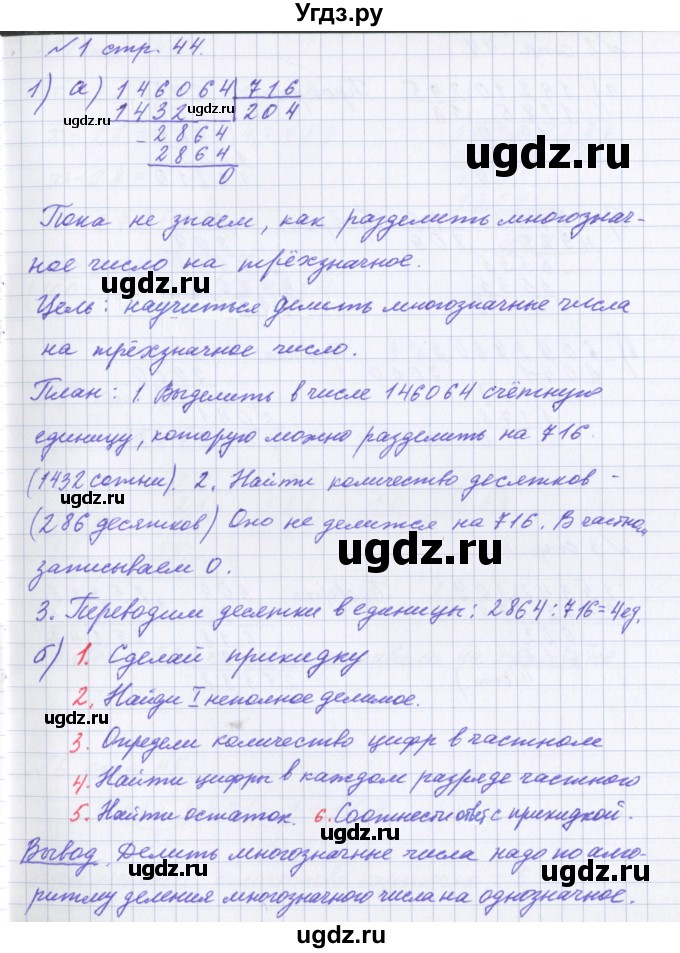 Угдз.ру
№1 стр. 44.
1) а) 146064 716
1432 204
ugdz.ru
- 2864
ugdz.ru
2864
ugdz.ru
0
Пока не знаем, как разделить многознач-
ное число на трёхзначное.
ugdz.ru
Цель: научиться делить многозначные числа
на трёхзначное число.
План: 1. Выделить в числе 146064 счётную
единицу, которую можно разделить на 716.
(1432 сотни). 2. Найти количество десятков -
(286 десятков) Оно не делится на 716. В частном
ugdz.ru
записываем 0.
3. Переводим десятки в единицы: 2864:716=4ед.
б) 1. Сделай прикидку
2. Найди I неполное делимое.
ugdz.ru
3. Определи количество цифр в частном
ugdz.ru
4. Найти цифры в каждом разряде частного
5. Найти остаток. 6. Соотнести ответ с прикидкой.
ugdz.ru
Вывод. Делить многозначные числа надо по алго-
ugdz.ru
ритму деления многозначного числа на однозначное.
ugdz.ru